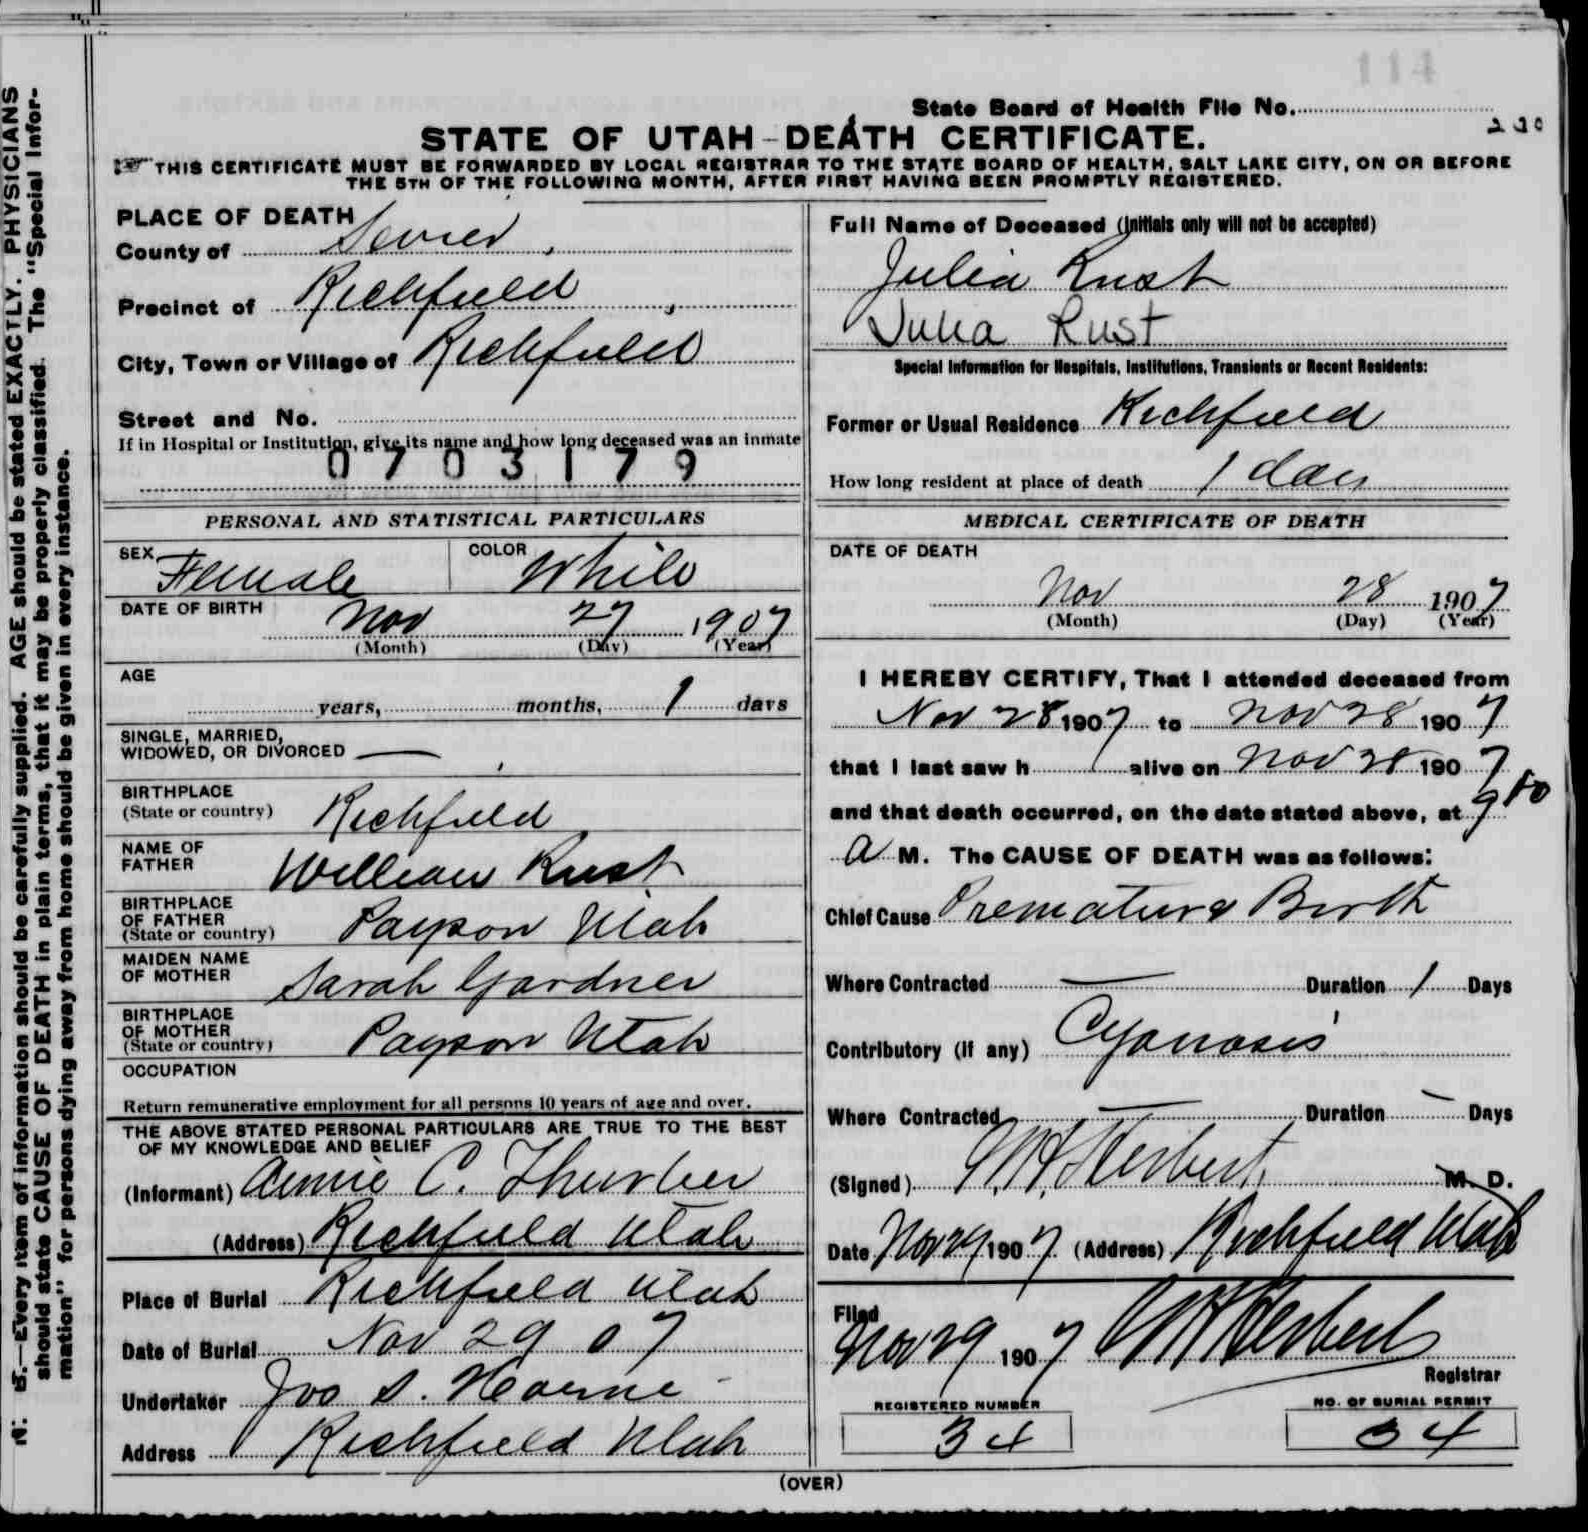 114
State Board of Health File No.
STATE OF UTAH - DEATH CERTIFICATE.
THIS CERTIFICATE MUST BE FORWARDED BY LOCAL REGISTRAR TO THE STATE BOARD OF HEALTH, SALT LAKE CITY, ON OR BEFORE
THE 5TH OF THE FOLLOWING MONTH, AFTER FIRST HAVING BEEN PROMPTLY REGISTERED.
N. B.—Every item of information should be carefully supplied. AGE should be stated EXACTLY. PHYSICIANS
should state CAUSE OF DEATH in plain terms, that it may be properly classified. The "Special Infor-
mation" for persons dying away from home should be given in every instance.
PLACE OF DEATH
County of Sevier
Precinct of Richfield
City, Town or Village of Richfield
Street and No.
If in Hospital or Institution, give its name and how long deceased was an inmate
0703179
PERSONAL AND STATISTICAL PARTICULARS
SEX Female COLOR White
DATE OF BIRTH Nov 27 1907
(Month) (Day) (Year)
AGE
years, months, 1 days
SINGLE, MARRIED,
WIDOWED, OR DIVORCED —
BIRTHPLACE
(State or country) Richfield
NAME OF
FATHER William Rust
BIRTHPLACE
OF FATHER
(State or country) Payson Utah
MAIDEN NAME
OF MOTHER Sarah Gardner
BIRTHPLACE
OF MOTHER
(State or country) Payson Utah
OCCUPATION
Return remunerative employment for all persons 10 years of age and over.
THE ABOVE STATED PERSONAL PARTICULARS ARE TRUE TO THE BEST
OF MY KNOWLEDGE AND BELIEF
(Informant) Annie C. Thurber
(Address) Richfield Utah
Place of Burial Richfield Utah
Date of Burial Nov 29 07
Undertaker Jos S. Horne
Address Richfield Utah
Full Name of Deceased (Initials only will not be accepted)
Julia Rust
Julia Rust
Special Information for Hospitals, Institutions, Transients or Recent Residents:
Former or Usual Residence Richfield
How long resident at place of death 1 day
MEDICAL CERTIFICATE OF DEATH
DATE OF DEATH
Nov 28 1907
(Month) (Day) (Year)
I HEREBY CERTIFY, That I attended deceased from
Nov 28 1907 to Nov 28 1907
that I last saw h alive on Nov 28 1907
and that death occurred, on the date stated above, at 9
a M. The CAUSE OF DEATH was as follows:
Chief Cause Premature Birth
Where Contracted — Duration 1 Days
Contributory (if any) Cyanosis
Where Contracted — Duration — Days
(Signed) Herbert M. D.
Date Nov 29 1907 (Address) Richfield Utah
Filed
Nov 29 1907 Herbert
Registrar
REGISTERED NUMBER
34
NO. OF BURIAL PERMIT
34
(OVER)